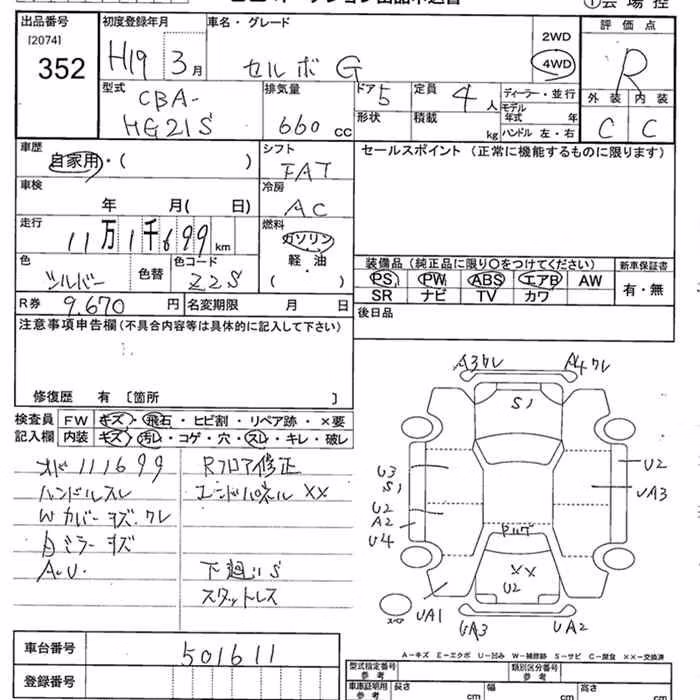 出品番号 初度登録年月 車名・グレード 2WD 評価点
[2074] 352 H19 3月 セルボ G 4WD R
型式 排気量 ドア 定員 ディーラー・並行 外装 内装
CBA- 5 4人 モデル年式 年
HG21S 660cc 形状 積載 kg ハンドル 左・右 C C
車歴 シフト セールスポイント (正常に機能するものに限ります)
自家用・( ) FAT
車検 冷房
年 月( 日) AC
走行 燃料
11万1千699km ガソリン
色 色替 色コード 軽・油 装備品 (純正品に限り○をつけてください) 新車保証書
シルバー Z2S ( ) PS PW ABS エアB AW 有・無
SR ナビ TV カワ
R券 9.670円 名変期限 月 日 後日品
注意事項申告欄 (不具合内容等は具体的に記入して下さい)
修復歴 有 [箇所 ]
検査員 FW キズ・飛石・ヒビ割・リペア跡・×要
記入欄 内装 キズ・汚レ・コゲ・穴・スレ・キレ・破レ
オド111699 Rフロア修正
ハンドルスレ エンドパネル××
Wカバーキズ.クレ
Aミラーキズ
A.U. 下廻りS
スタットレス
A3クレ A4クレ
S1
U3 U2
S1 UA3
U2
A2
U4
××
U2
UA1 UA3 UA2
スペア
A-キズ E-エクボ U-凹み W-補修跡 S-サビ C-腐食 ××-交換済
車台番号 501611
登録番号
型式指定番号 参考 類別区分番号 参考
車庫証明用 参考 長さ cm 幅 cm 高さ cm